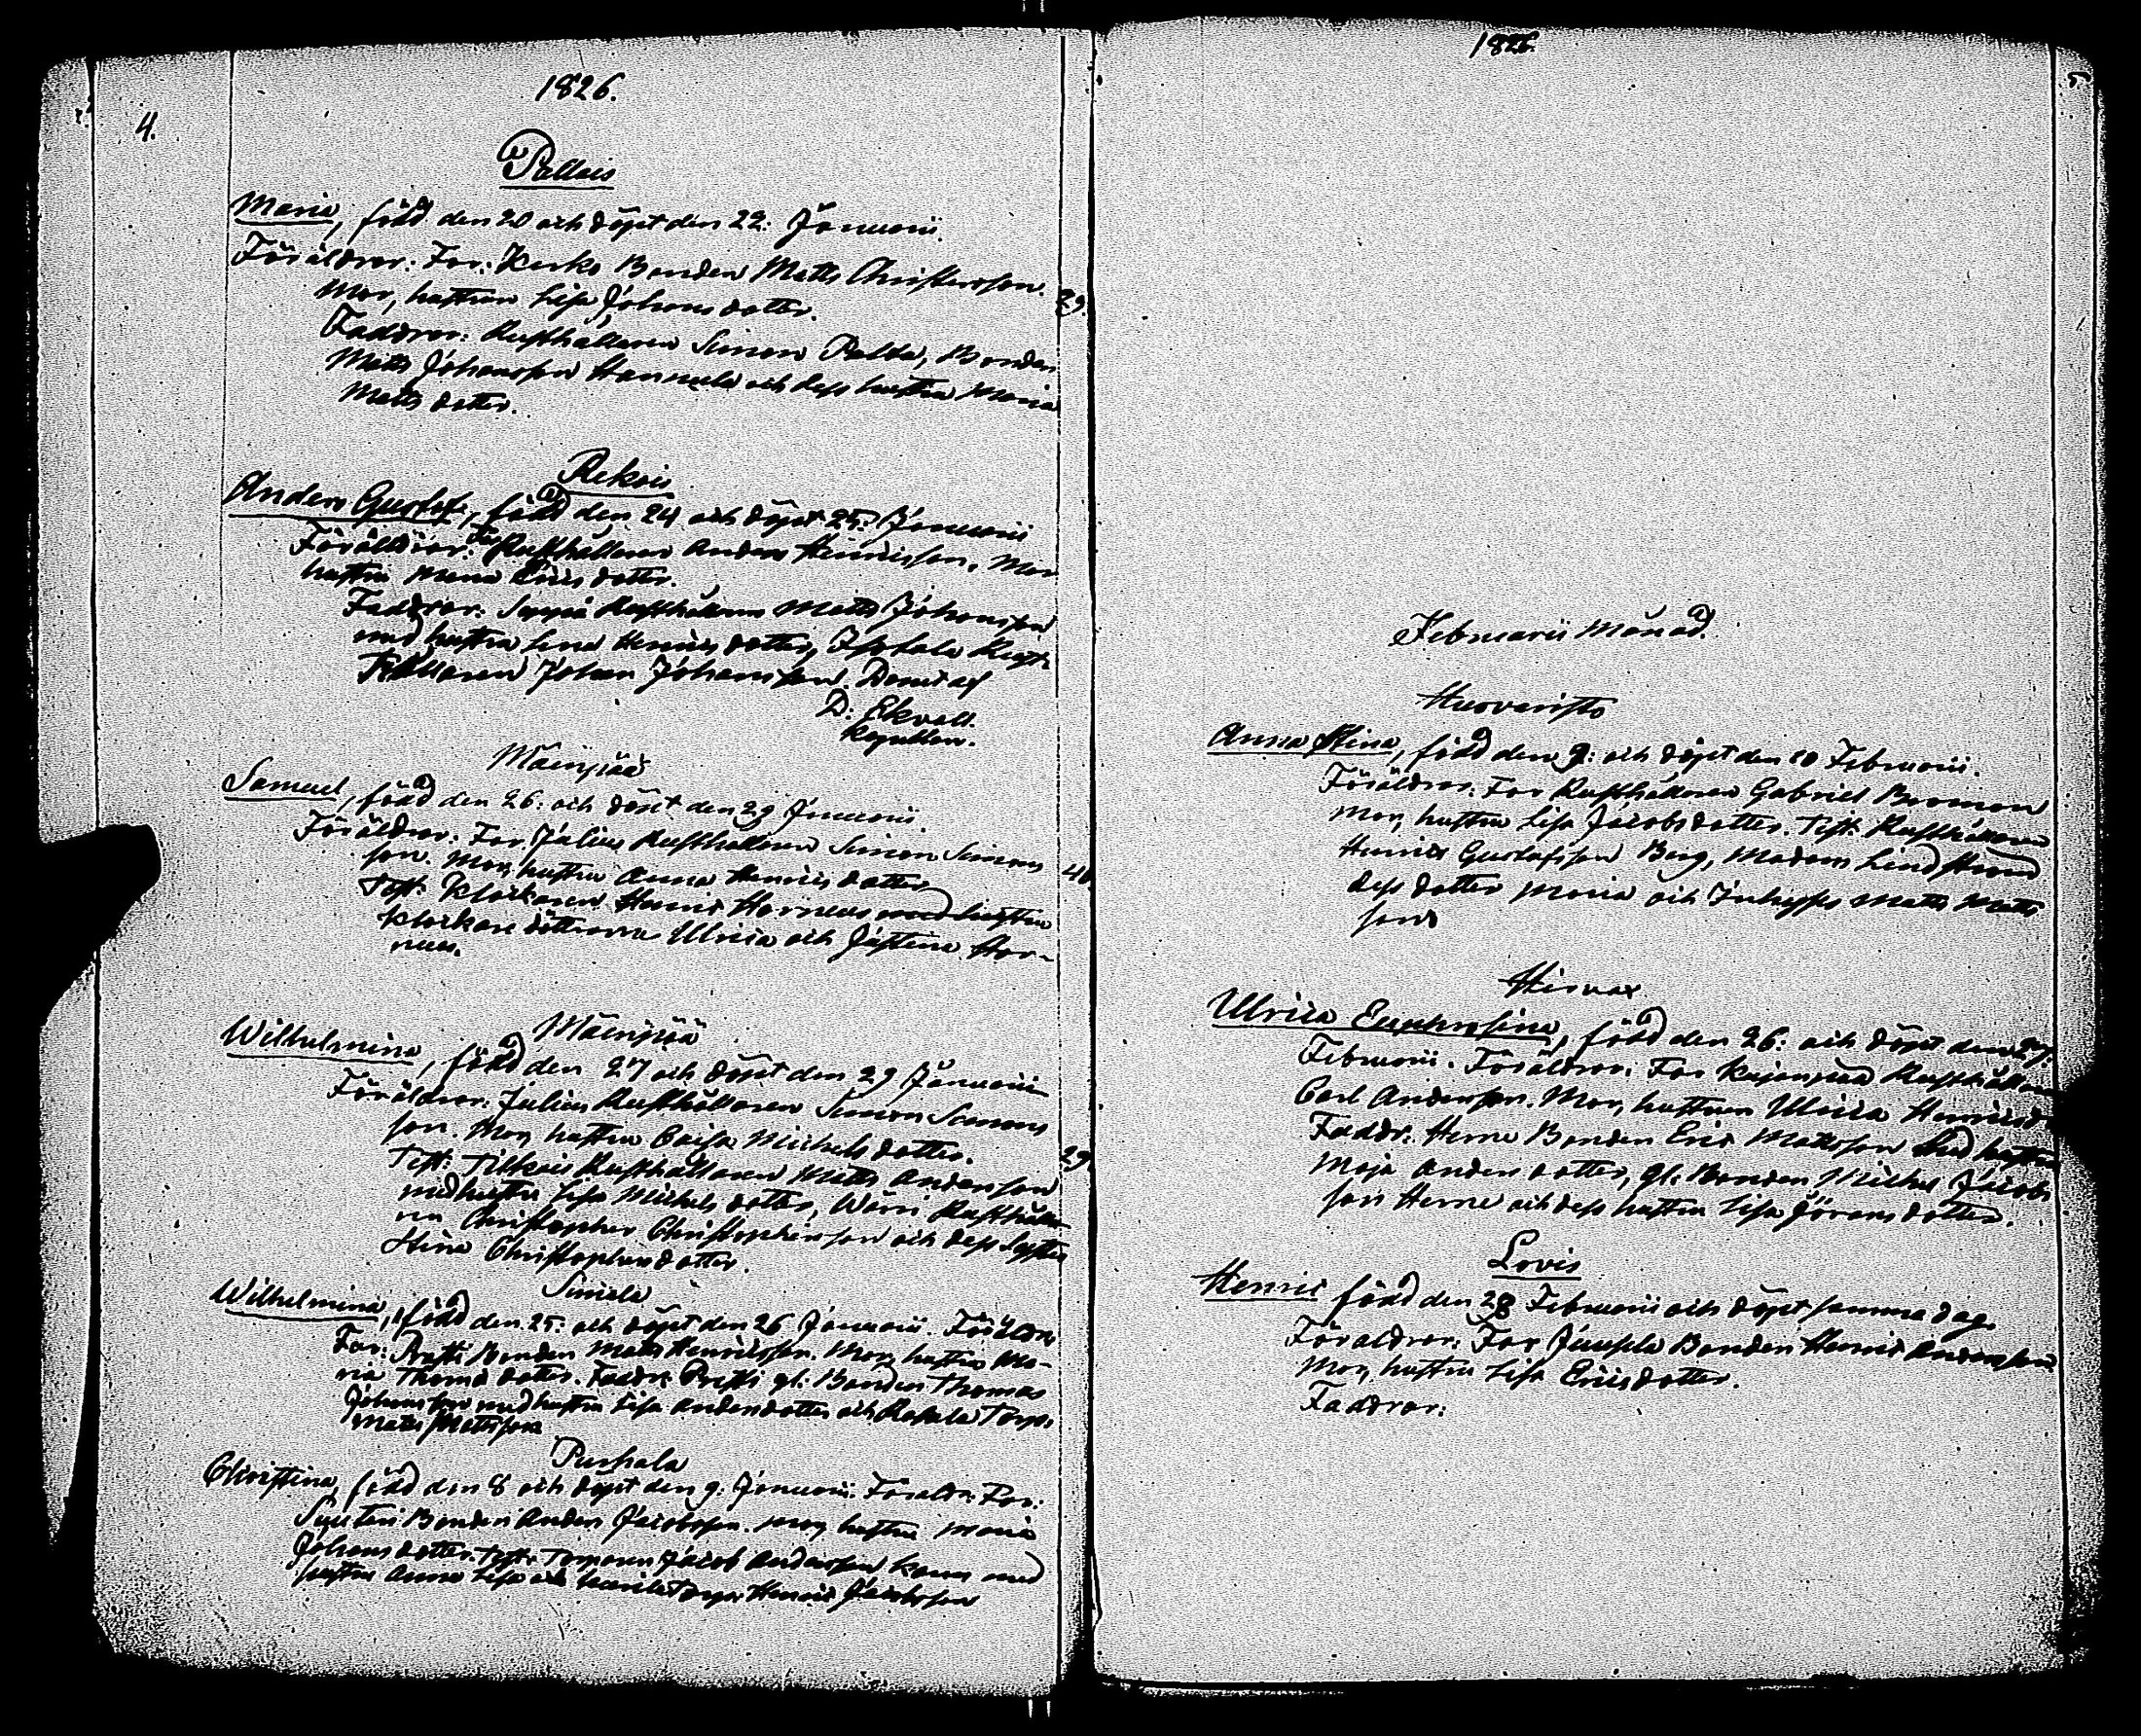 1826.
4.
Pallais
Maria, född den 20 och döpt den 22: Januarii.
Föräldrar: Far: Kerko Bonden Matts Christersson.
Mor, hustrun Lisa Johans dotter.
29.
Faddrar: Rusthållaren Simon Palda, Bonden
Matts Johansson Hannula och dess hustru Maria
Matts dotter.
Rekois
Anders Gustaf, född den 24 och döpt 25: Januarii
Föräldrar: Far Rusthållaren Anders Henricsson, Mor
hustru Maria Erics dotter.
Faddrar: Seppä Rusthållaren Matts Johansson
med hustru Lena Henrics dotter,
Johan Johansson. Döpt af
D: Ekvall.
Kapellan.
Mäenpää
Samuel, född den 26: och döpt den 29 Januarii.
Föräldrar: Far, Julius Rusthållaren Simon Simons
son. Mor, hustru Anna Henrics dotter
40.
Test: Klockaren Henric Hornæus med hustru
Klockare döttrarna Ulrica och Justina Hor-
næus.
Mäenpää
Wilhelmina, född den 27 och döpt den 29 Januarii
Föräldrar: Julius Rusthållaren Simon Simons
son. Mor, hustru Caisa Michels dotter.
29.
Test: Tilkois Rusthållaren Matts Andersson
med hustru Lisa Michels dotter, Wäni Rusthålla
ren Christopher Christophersson och dess Syster
Stina Christophers dotter.
Simola
Wilhelmina, född den 25: och döpt den 26 Januarii. Föräldr:
Far: Bonden Matts Henricsson. Mor, hustru Ma-
ria Thomæ dotter. Faddr: gl: Bonden Thomas
Johansson med hustru Lisa Anders dotter och Torp:
Matts Mattsson
Purhala
Christina, född den 8 och döpt den 9. Januarii. Föräldr: Far:
Bonden Anders Jacobsson. Mor, hustru Maria
Johans dotter. Test: Torparen Jacob Andersson med
hustru Anna Lisa och Henric Jacobsson
1826.
5
Februarii Månad.
Huovaristo
Anna Stina, född den 9: och döpt den 10 Februarii.
Föräldrar: Far Rusthållaren Gabriel Broman
Mor, hustru Lisa Jacobs dotter. Test: Rusthållaren
Henric Gustafsson Berg, Madam Lindström
dess dotter Maria och Inhyses Matts Matts
son
Hisvax
Ulrica Euphrosina, född den 26: och döpt den 27:
Februarii. Föräldrar: Far Kajanpää Rusthållaren
Carl Andersson. Mor, hustrun Ulrica Henricsd:
Faddr: Herne Bonden Eric Mattsson med hustru
Maja Anders dotter, gl: Bonden Michel Jacobs
son Herne och dess hustru Lisa Jörans dotter.
Lovis
Henric född den 28 Februarii och döpt samma dag.
Föräldrar: Far Juusela Bonden Henric Andersson
Mor, hustru Lisa Erics dotter.
Faddrar: